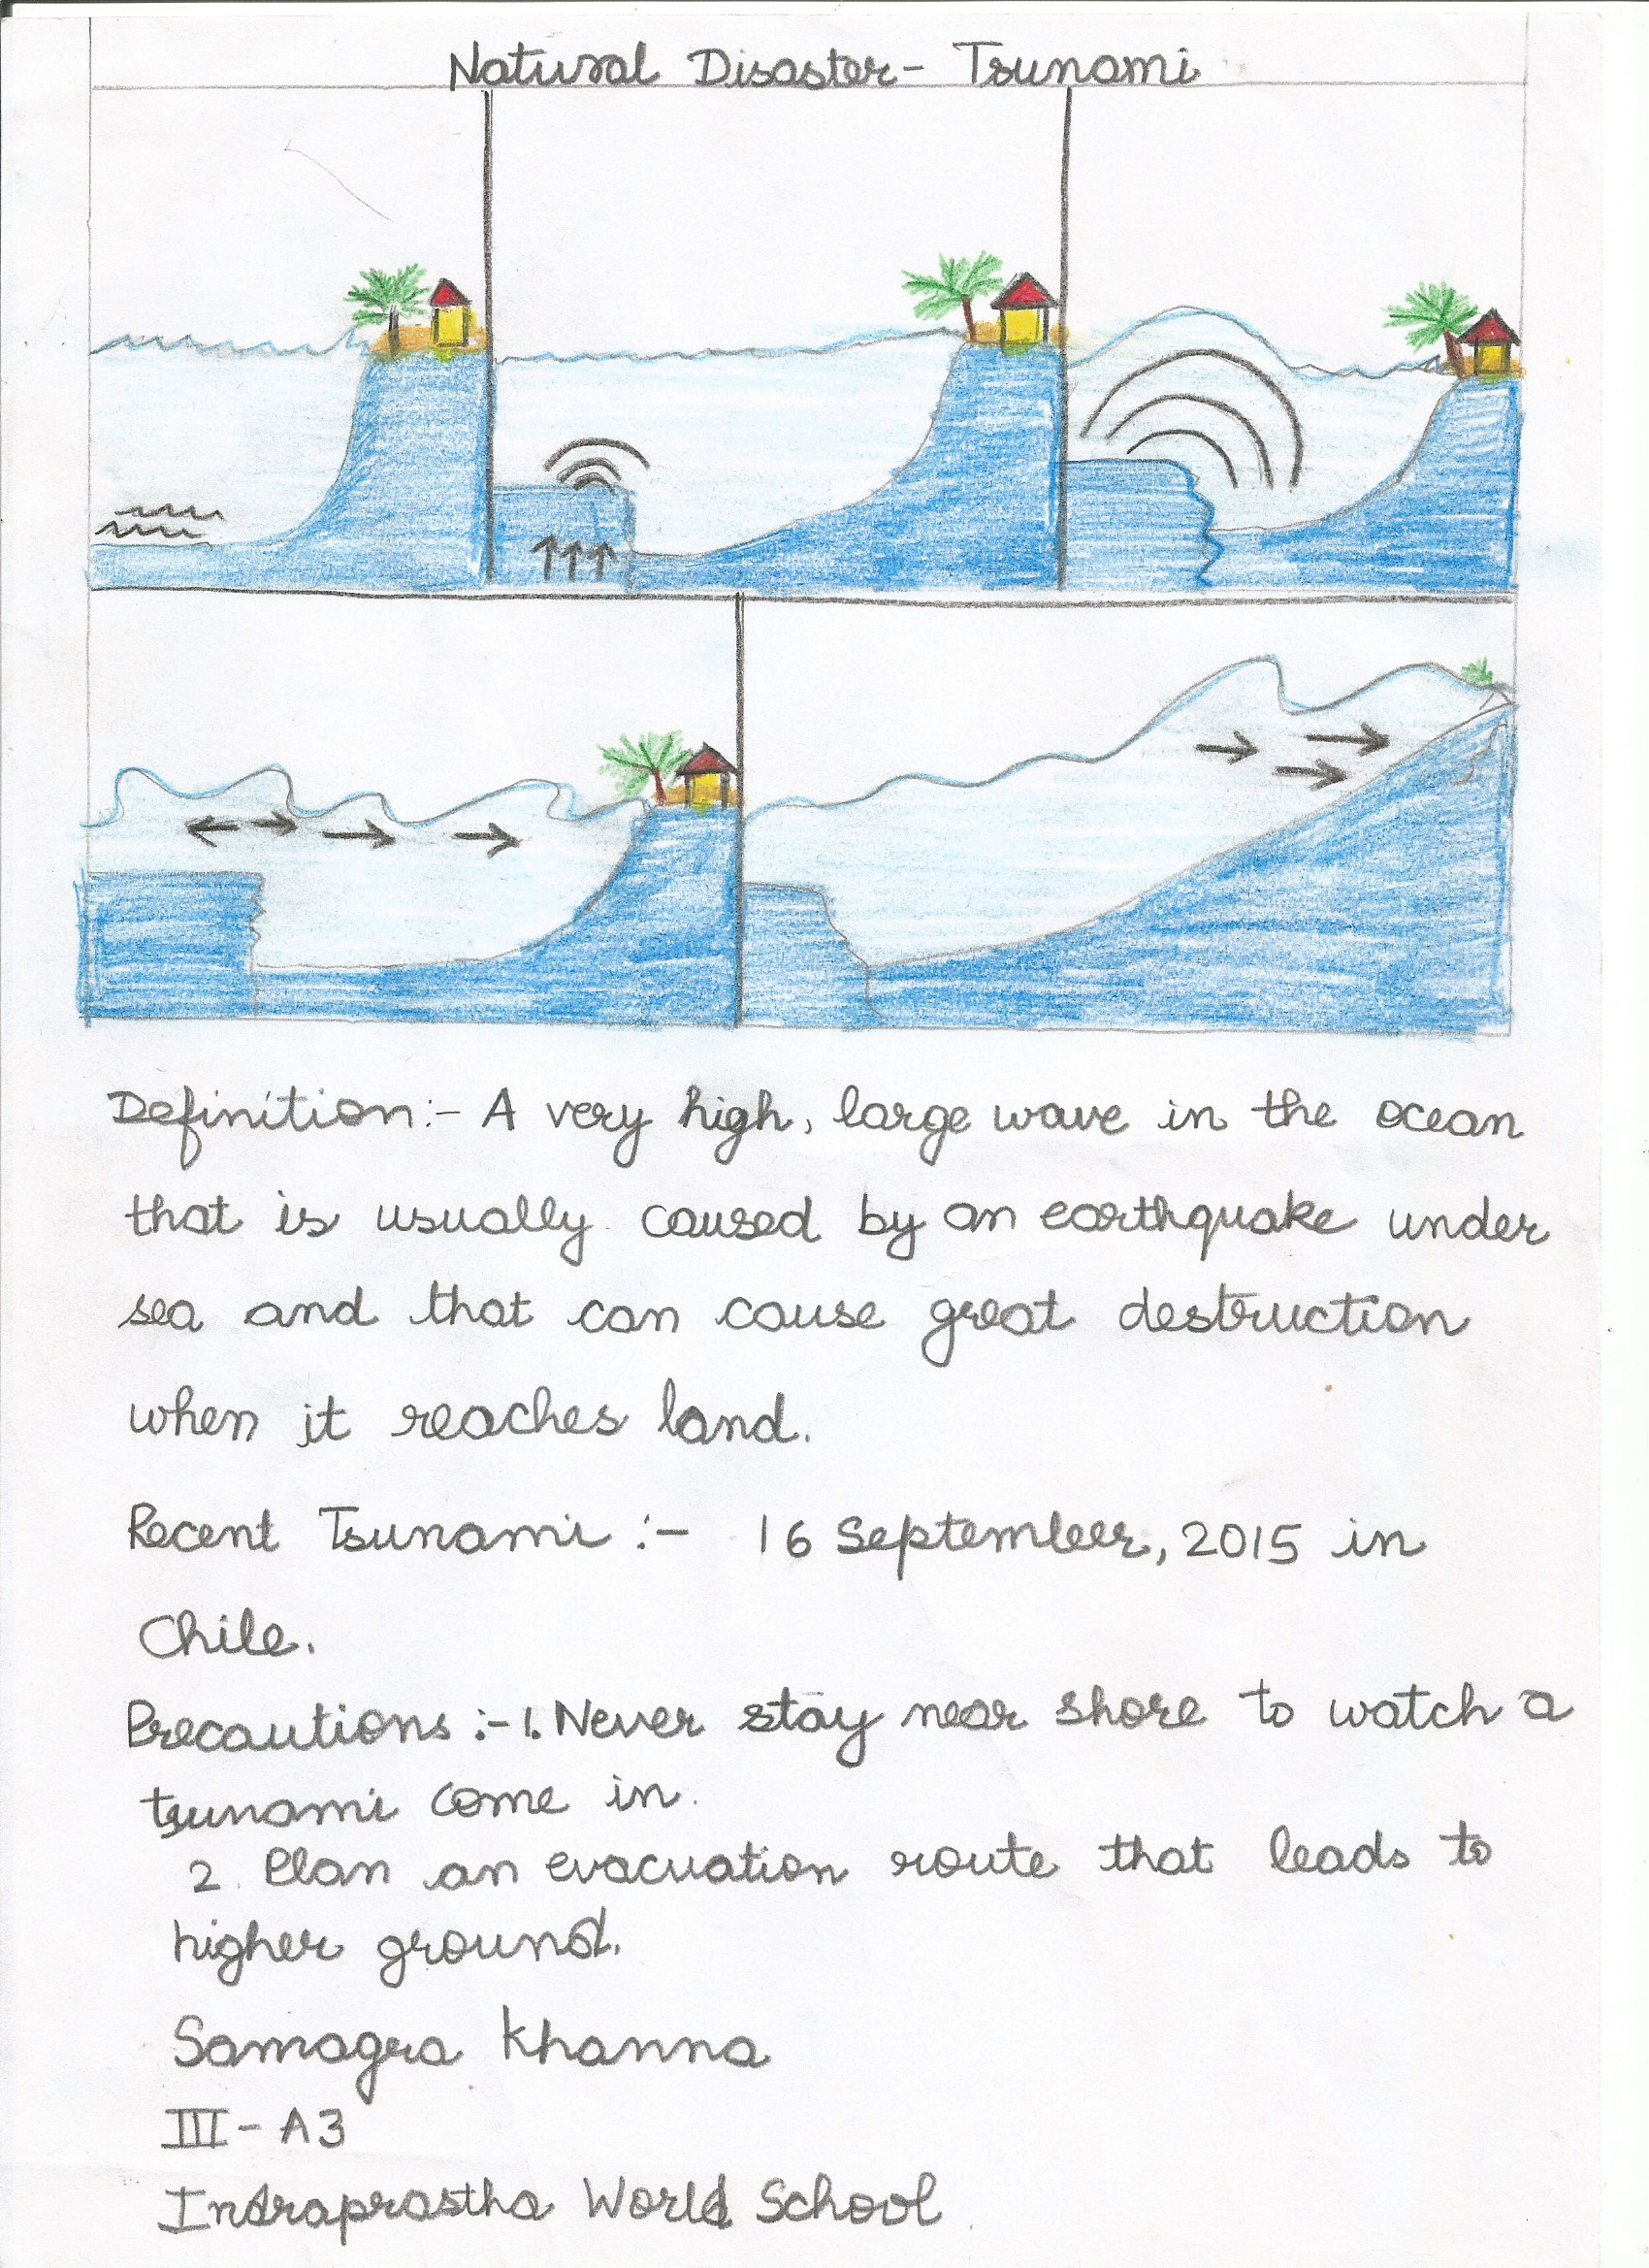 Natural Disaster- Tsunami
Definition:- A very high, large wave in the ocean
that is usually caused by an earthquake under
sea and that can cause great destruction
when it reaches land.
Recent Tsunami :- 16 September, 2015 in
Chile.
Precautions :- 1. Never stay near shore to watch a
tsunami come in.
2. Plan an evacuation route that leads to
higher ground.
Samagra Khanna
III - A3
Indraprastha World School